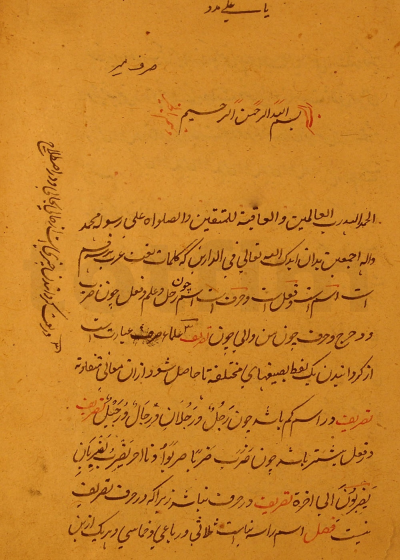 یا علی مدد
صرف میر
بسم الله الرحمن الرحیم
الحمد لله رب العالمین والعاقبة للمتقین والصلواة علی رسوله محمد
واله اجمعین بدان ایدک الله تعالی فی الدارین که کلمات لغت عرب بر سه قسم
است اسم است و فعل است و حرف است اسم چون رجل و علم و فعل چون ضرب
و دحرج و حرف چون من والی چون تصریف علماء صرف عبارت است
از گردانیدن یک لفظ بصیغهای مختلفه تا حاصل شود از ان معانی متفاوتة
تصریف در اسم کم باشد چون رجل و رجلان و رجال و رجیل تصریف
در فعل بیشتر باشد چون ضرب ضربا ضربوا و تا اخر یضرب یضربان
یضربون الی اخره تصریف در حرف نباشد زیرا که در حرف تصریف
نیست فصل اسم را سه بناست ثلاثی و رباعی و خماسی و هر یک ازین